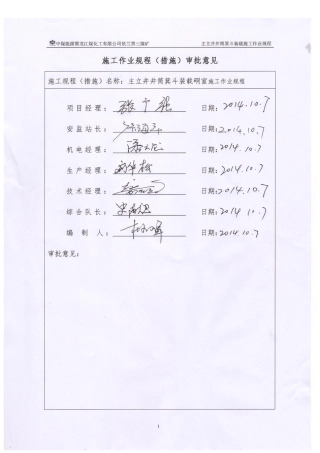 中煤能源黑龙江煤化工有限公司依兰第三煤矿 主立井井筒箕斗装载施工作业规程
施工作业规程（措施）审批意见
施工规程（措施）名称：主立井井筒箕斗装载硐室施工作业规程
项目经理： 日期：2014.10.7
安监站长： 日期：2014.10.7
机电经理： 日期：2014.10.7
生产经理： 日期：2014.10.7
技术经理： 日期：2014.10.7
综合队长： 日期：2014.10.7
编 制 人： 日期：2014.10.7
审批意见：
1